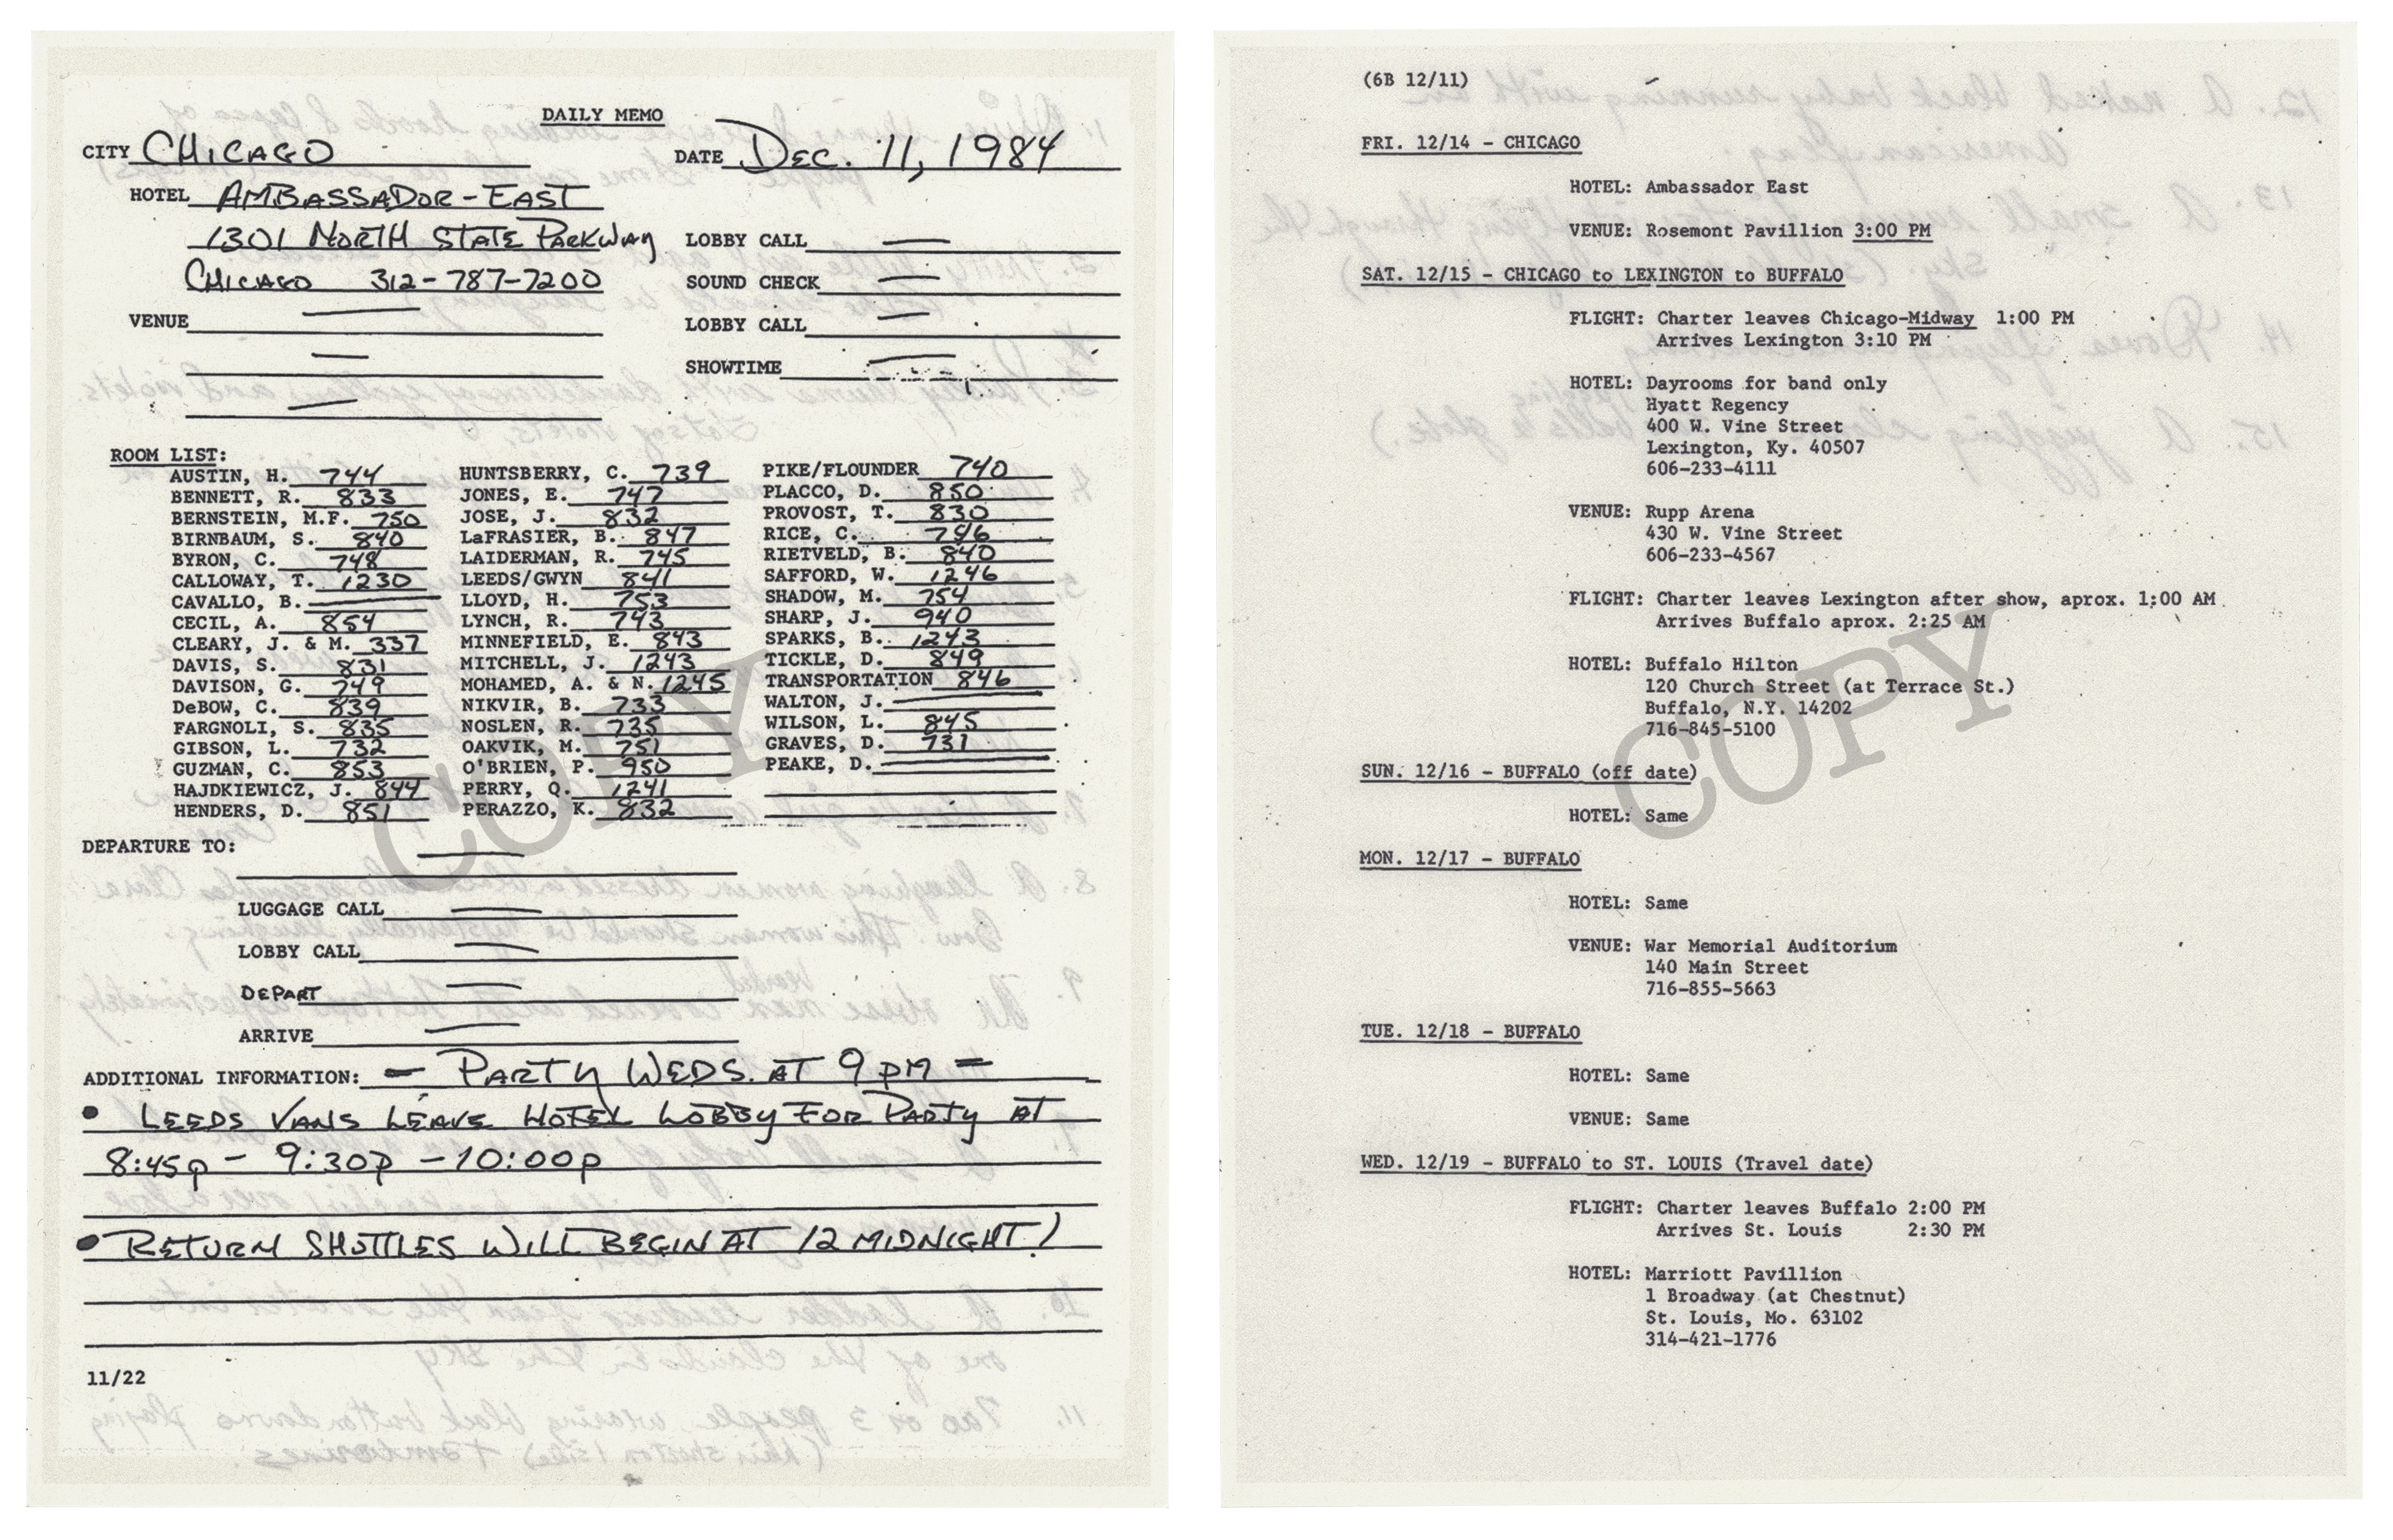 DAILY MEMO
CITY CHICAGO DATE DEC. 11, 1984
HOTEL AMBASSADOR-EAST
1301 NORTH STATE PARKWAY LOBBY CALL —
CHICAGO 312-787-7200 SOUND CHECK —
VENUE — LOBBY CALL —
— SHOWTIME —
—
ROOM LIST:
AUSTIN, H. 744 HUNTSBERRY, C. 739 PIKE/FLOUNDER 740
BENNETT, R. 833 JONES, E. 747 PLACCO, D. 850
BERNSTEIN, M.F. 750 JOSE, J. 832 PROVOST, T. 830
BIRNBAUM, S. 840 LaFRASIER, B. 847 RICE, C.
BYRON, C. 748 LAIDERMAN, R. 745 RIETVELD, B. 840
CALLOWAY, T. 1230 LEEDS/GWYN 841 SAFFORD, W. 1246
CAVALLO, B. — LLOYD, H. 753 SHADOW, M. 754
CECIL, A. 854 LYNCH, R. 743 SHARP, J. 940
CLEARY, J. & M. 337 MINNEFIELD, E. 843 SPARKS, B. 1243
DAVIS, S. 831 MITCHELL, J. 1243 TICKLE, D. 849
DAVISON, G. 749 MOHAMED, A. & N. 1245 TRANSPORTATION 846
DeBOW, C. 839 NIKVIR, B. 733 WALTON, J. —
FARGNOLI, S. 835 NOSLEN, R. 735 WILSON, L. 845
GIBSON, L. 732 OAKVIK, M. 751 GRAVES, D. 731
GUZMAN, C. 853 O'BRIEN, P. 950 PEAKE, D. —
HAJDKIEWICZ, J. 844 PERRY, Q. 1241
HENDERS, D. 851 PERAZZO, K. 832
DEPARTURE TO: —
LUGGAGE CALL —
LOBBY CALL —
DEPART —
ARRIVE —
ADDITIONAL INFORMATION: — PARTY WEDS. AT 9 PM —
• LEEDS VANS LEAVE HOTEL LOBBY FOR PARTY AT
8:45p - 9:30p - 10:00p
• RETURN SHUTTLES WILL BEGIN AT 12 MIDNIGHT!
11/22
COPY
(6B 12/11)
FRI. 12/14 - CHICAGO
HOTEL: Ambassador East
VENUE: Rosemont Pavillion 3:00 PM
SAT. 12/15 - CHICAGO to LEXINGTON to BUFFALO
FLIGHT: Charter leaves Chicago-Midway 1:00 PM
Arrives Lexington 3:10 PM
HOTEL: Dayrooms for band only
Hyatt Regency
400 W. Vine Street
Lexington, Ky. 40507
606-233-4111
VENUE: Rupp Arena
430 W. Vine Street
606-233-4567
FLIGHT: Charter leaves Lexington after show, aprox. 1:00 AM
Arrives Buffalo aprox. 2:25 AM
HOTEL: Buffalo Hilton
120 Church Street (at Terrace St.)
Buffalo, N.Y. 14202
716-845-5100
SUN. 12/16 - BUFFALO (off date)
HOTEL: Same
MON. 12/17 - BUFFALO
HOTEL: Same
VENUE: War Memorial Auditorium
140 Main Street
716-855-5663
TUE. 12/18 - BUFFALO
HOTEL: Same
VENUE: Same
WED. 12/19 - BUFFALO to ST. LOUIS (Travel date)
FLIGHT: Charter leaves Buffalo 2:00 PM
Arrives St. Louis 2:30 PM
HOTEL: Marriott Pavillion
1 Broadway (at Chestnut)
St. Louis, Mo. 63102
314-421-1776
COPY